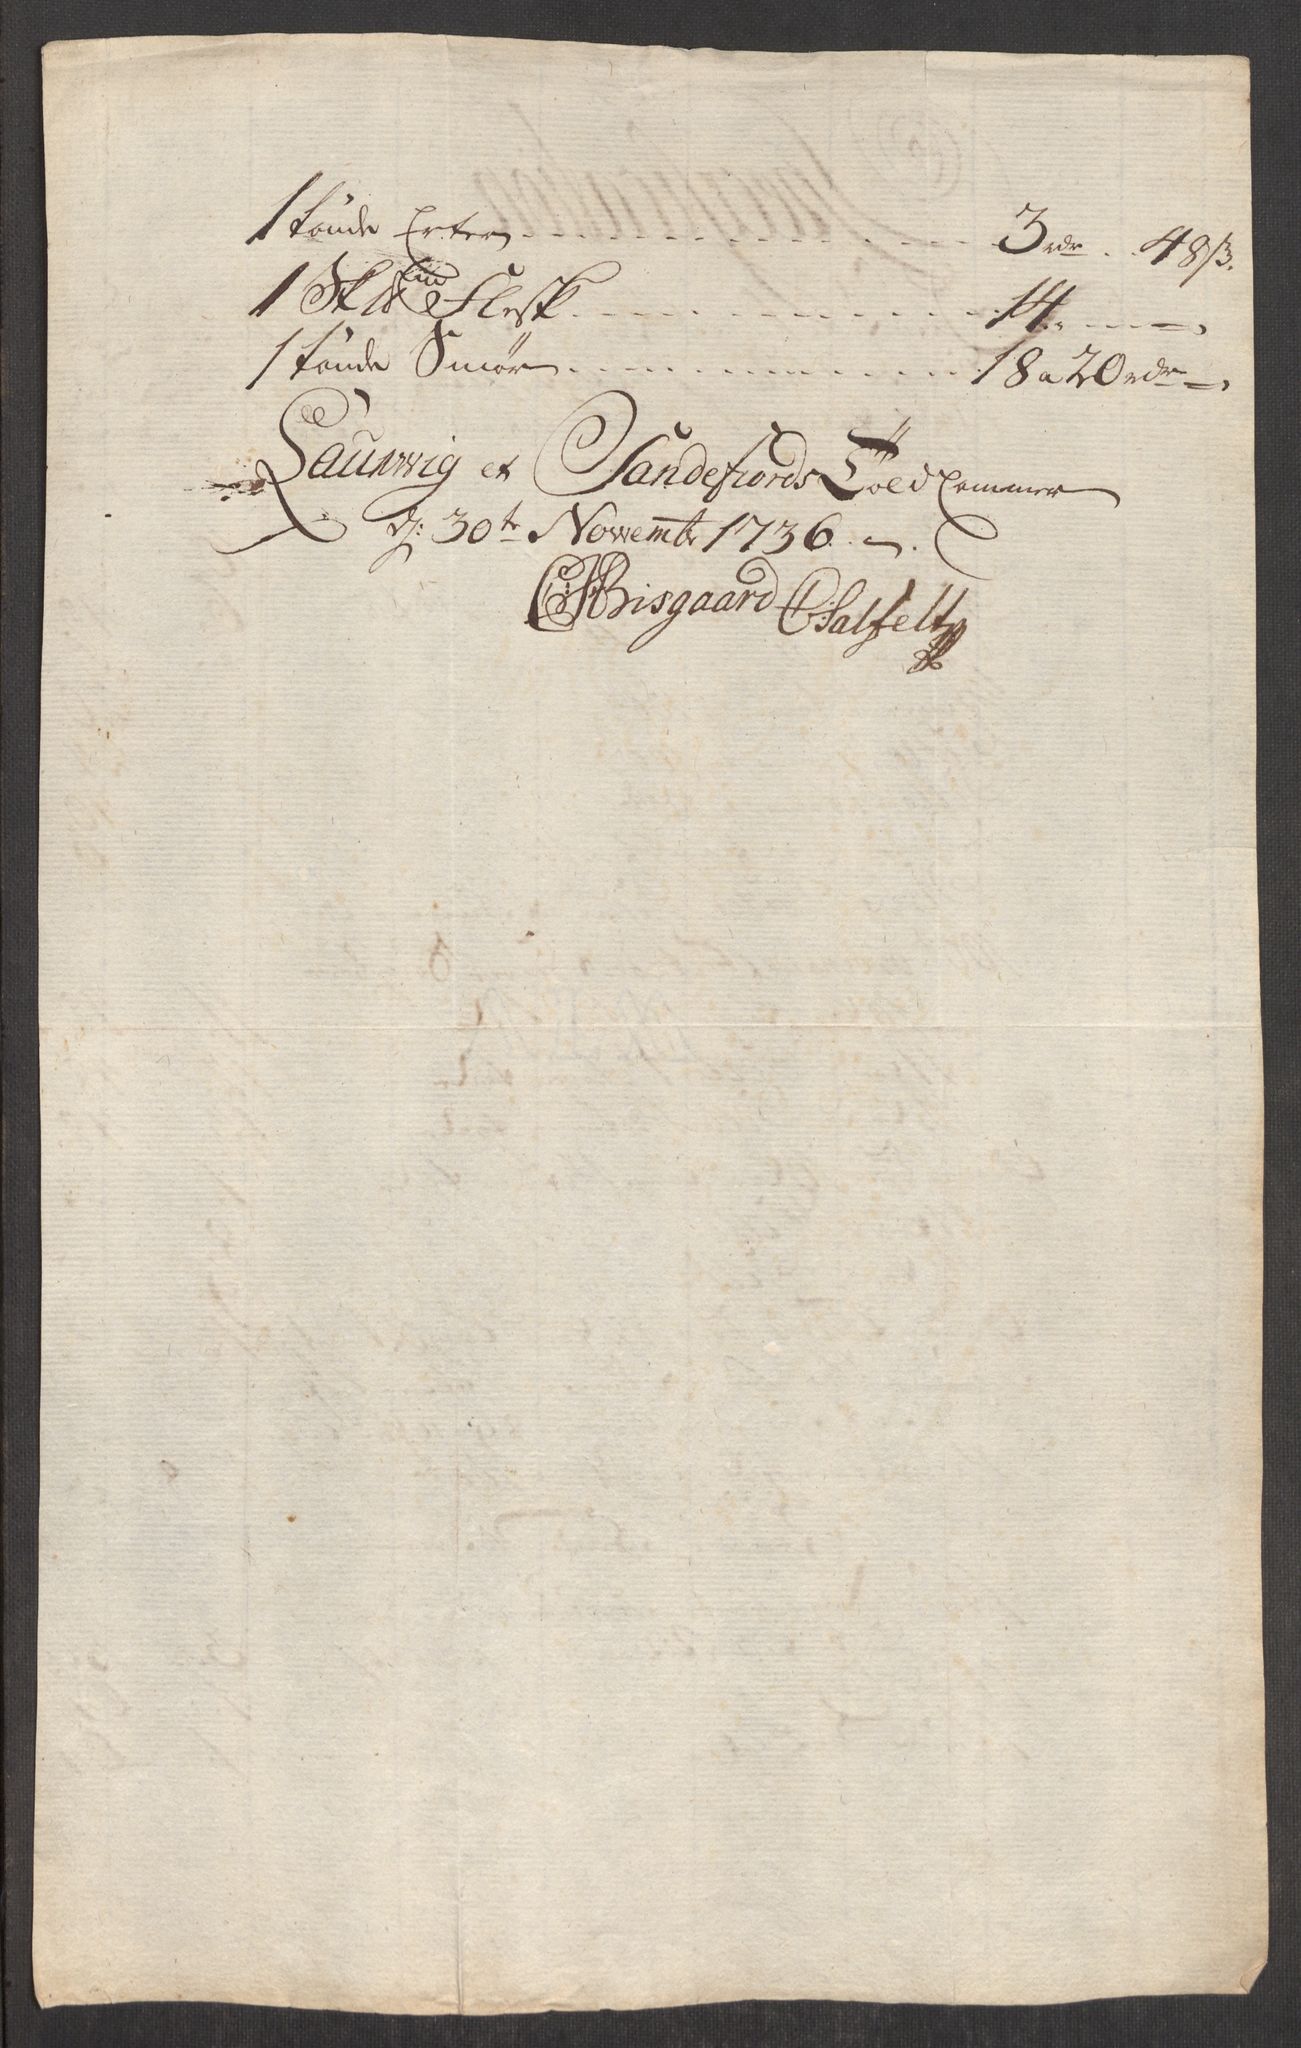 1 tönde Erter . . . . . . . . . . 3 rdr . . 48 β.
1 Sk℔ Flesk . . . . . . . . . . 14. — — ,
1 tönde Smör . . . . . . . . . . 18 a 20 rdr — ,
Laurwig et Sandefiords Told Cammer
d: 30te Novembr 1736. — .
Bisgaard CSalfelt